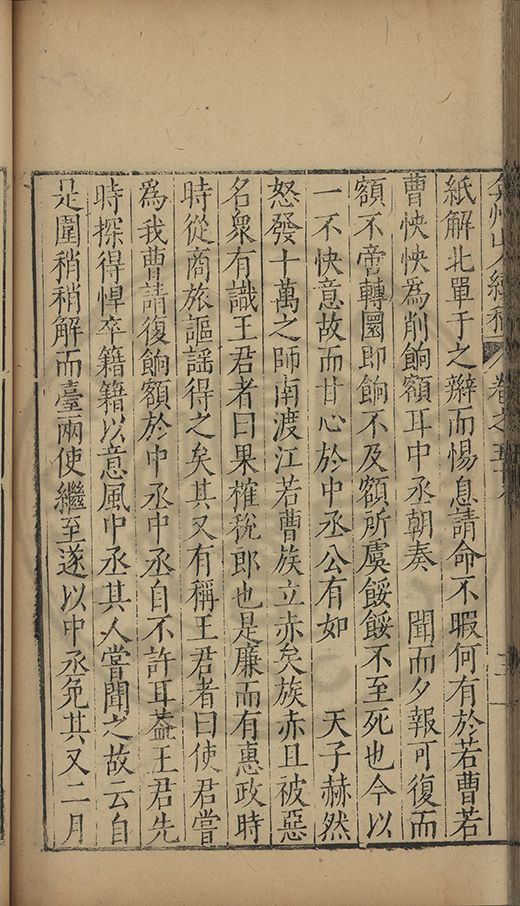 弇州山人續稿 卷之五十
紙解北單于之辮而惕息請命不暇何有於若曹若
曹怏怏為削餉額耳中丞朝奏 聞而夕報可復而
額不啻轉圜即餉不及額所虞餒餒不至死也今以
一不快意故而甘心於中丞公有如 天子赫然
怒發十萬之師南渡江若曹族立赤矣族赤且被惡
名衆有識王君者曰果榷稅郎也是廉而有惠政時
時從商旅謳謠得之矣其又有稱王君者曰使君嘗
為我曹請復餉額於中丞中丞自不許耳蓋王君先
時探得悍卒籍籍以意風中丞其人嘗聞之故云自
是圍稍稍解而臺兩使繼至遂以中丞免其又二月